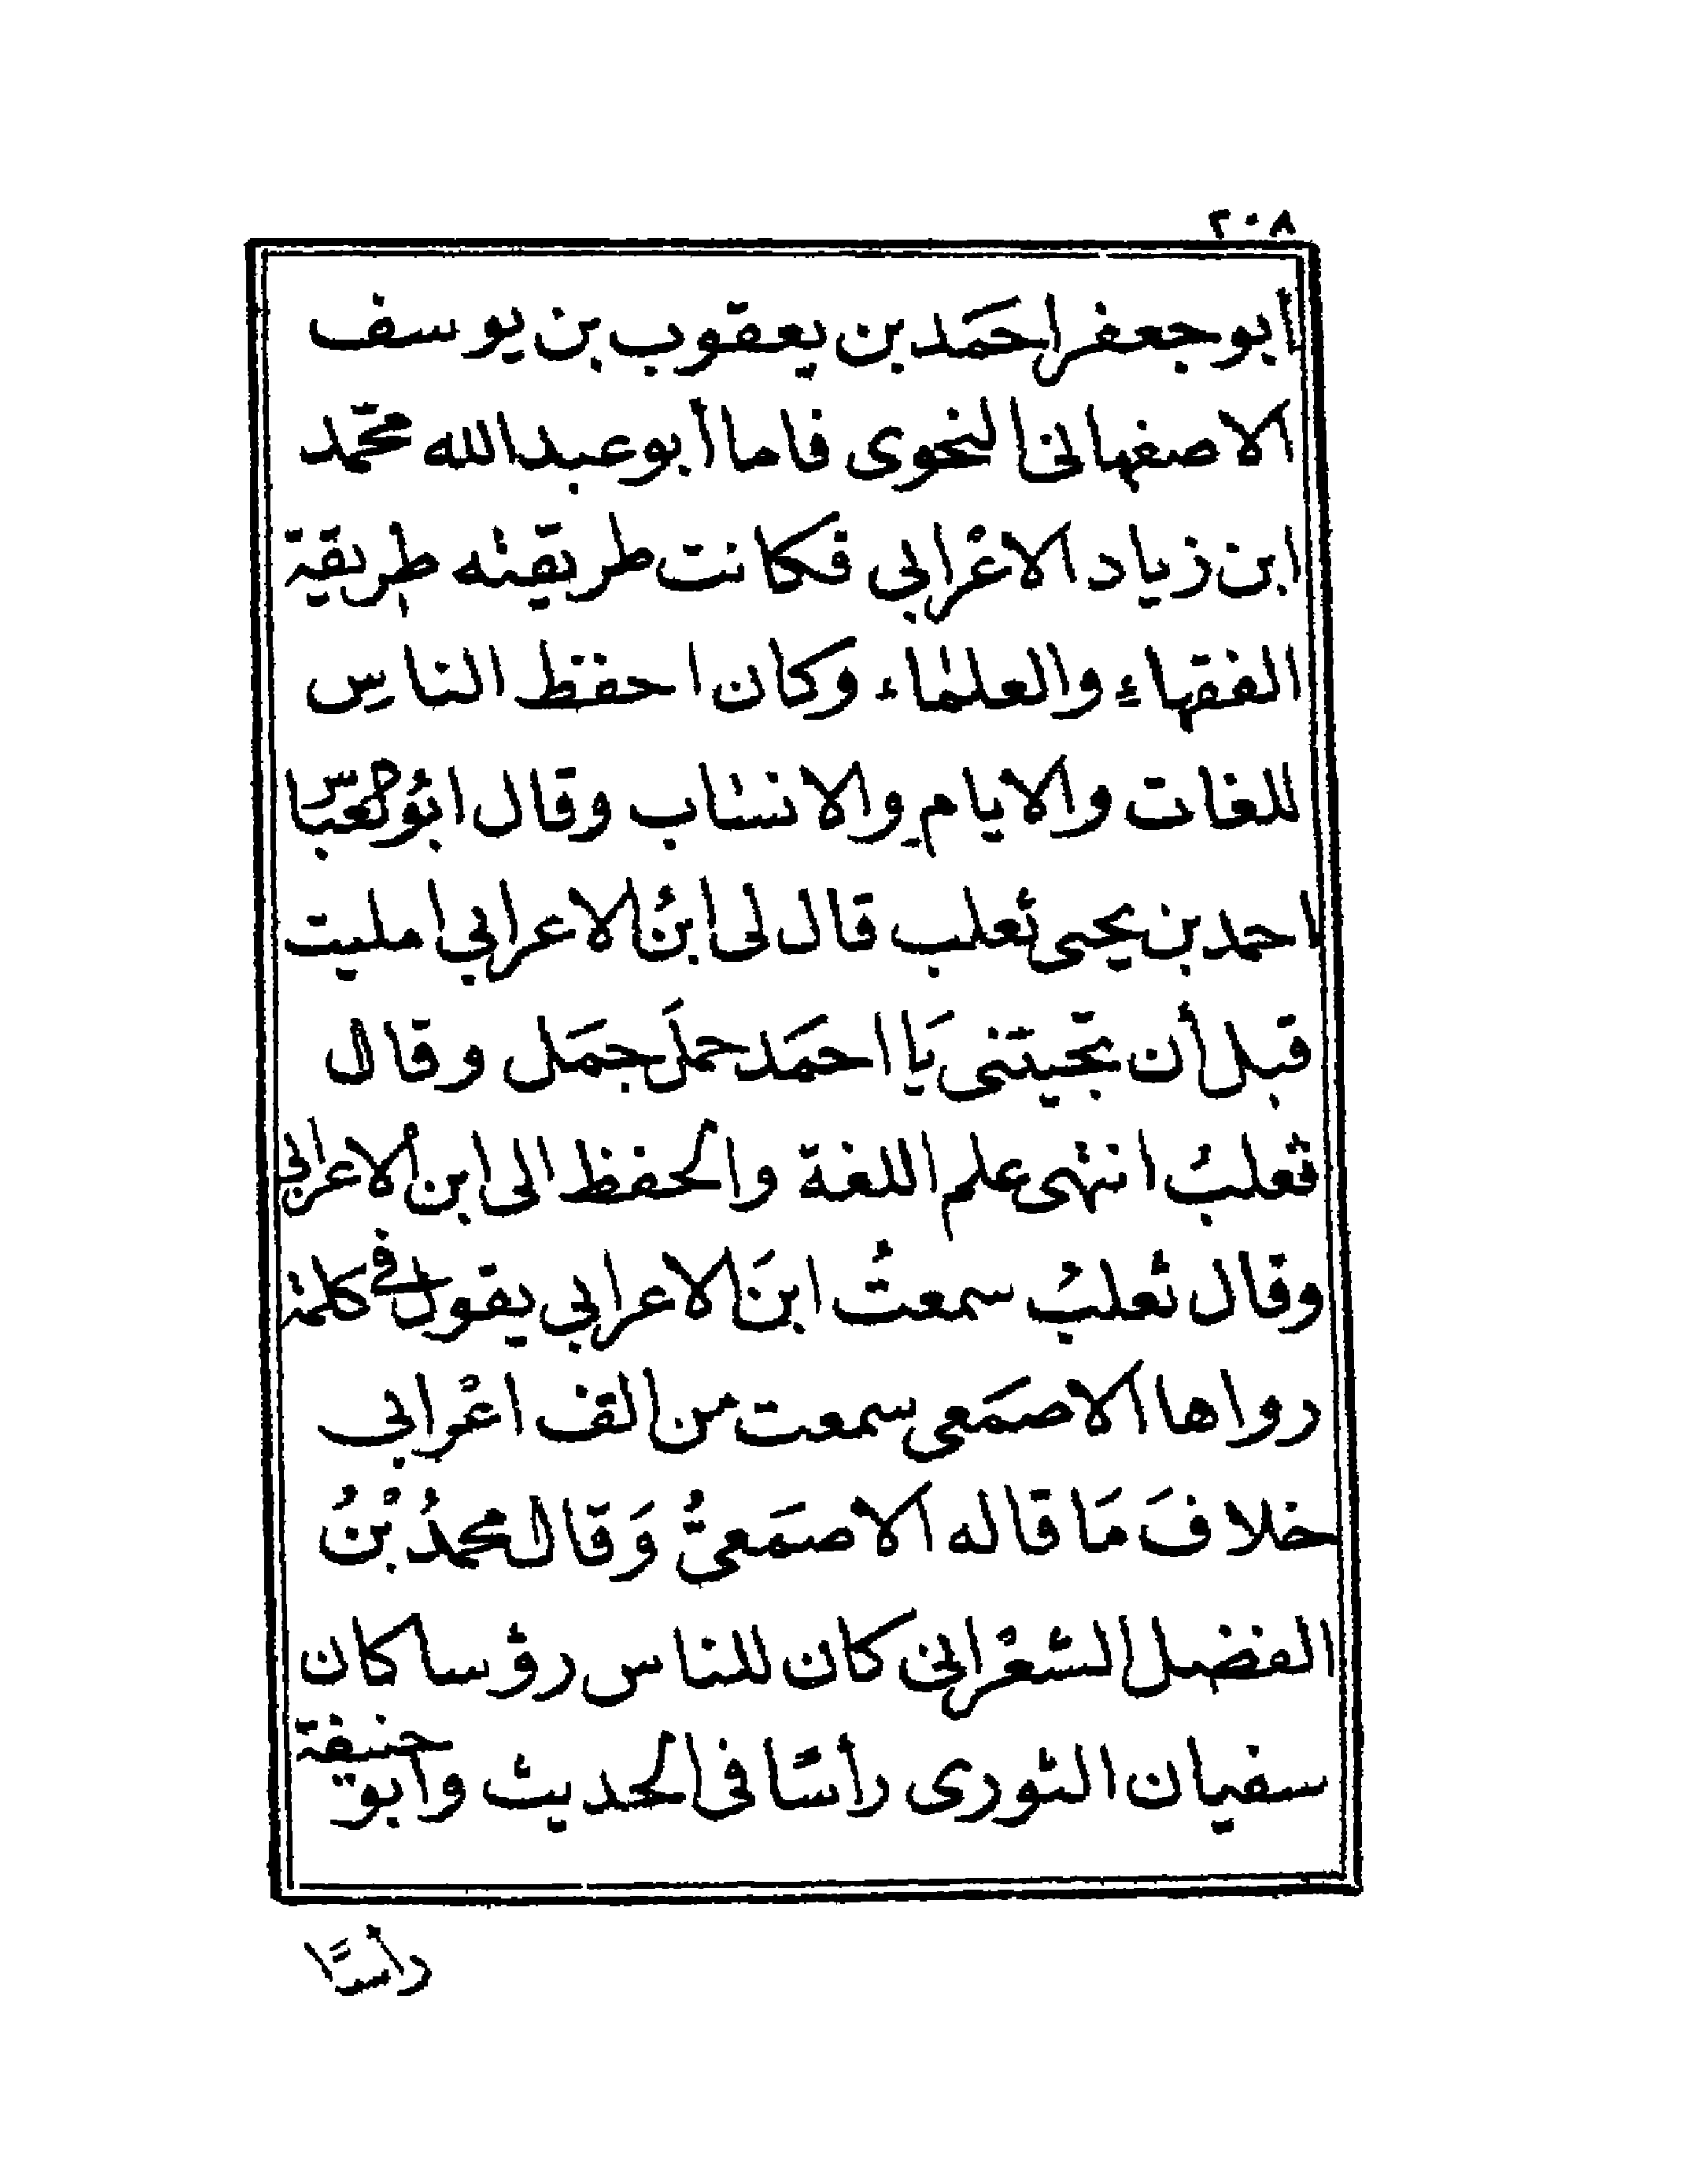 ٢٠٨
أبو جعفر احمَد بن يعقوب بن يوسف
الاصفهانى النحوى فاما أبو عبد الله محمّد
ابن زياد الاعْرابي فكانت طريقته طريقة
الفقهاءِ والعلماء وكان احفظ الناسِ
للغات والايامِ والانساب وقال ابُو العبّاس
احمد بن يحيى ثعلب قال لى ابنُ الاعرابي امليت
قبل أن تجيتنى يَا احمَد حملَ جمَل وقال
ثعلبُ انتهى علم اللغة والحفظ الى ابن الاعرابي
وقال ثعلبُ سمعتُ ابنَ الاعرابي يقول فى كلمة
رواها الاصمَعى سمعت من الف اعْرابي
خلافَ مَا قاله الاصمَعىُّ وَقال محمدُ بْنُ
الفضل الشعْرانى كان للناس رؤسا كان
سفيان الثورى رأسًا فى الحديث وأبو حنيفة
رأسًا